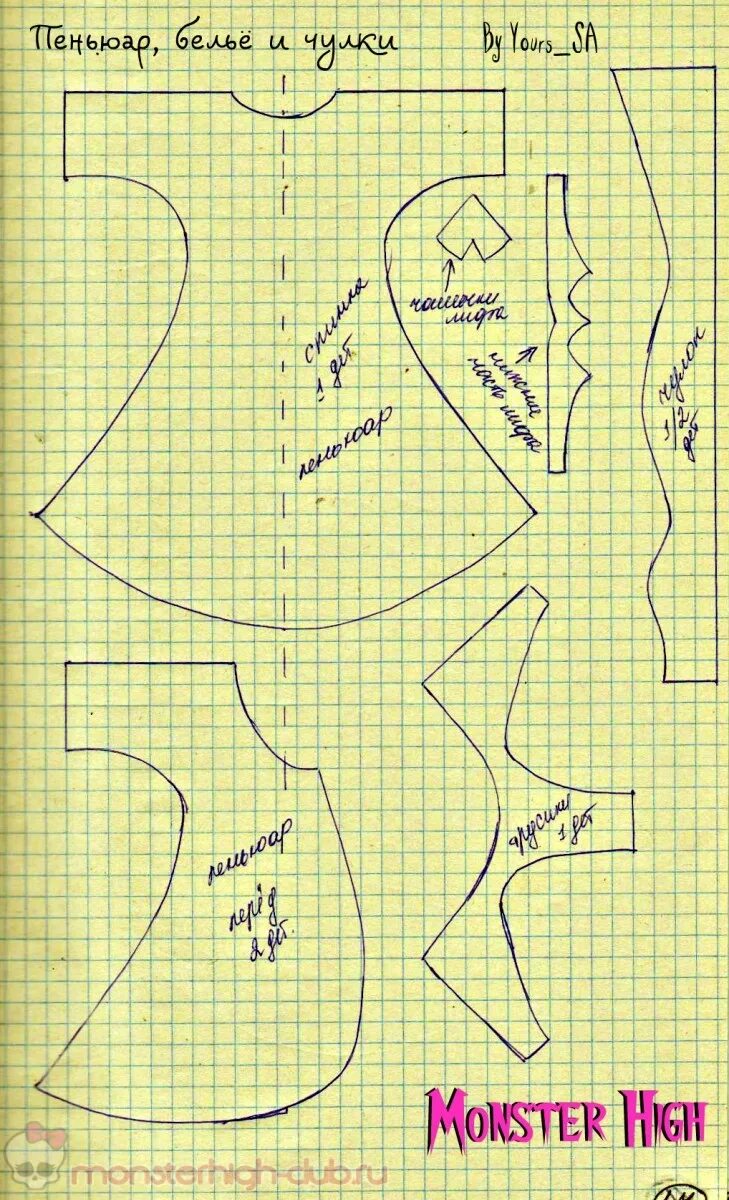 Пеньюар, бельё и чулки
By Yours_SA
спинка
1 дет
пеньюар
чашечки
лифа
нижние
часть лифа
чулок
1/2
дет
пеньюар
перёд
2 дет.
трусики
1 дет
MONSTER HIGH
monsterhigh-club.ru